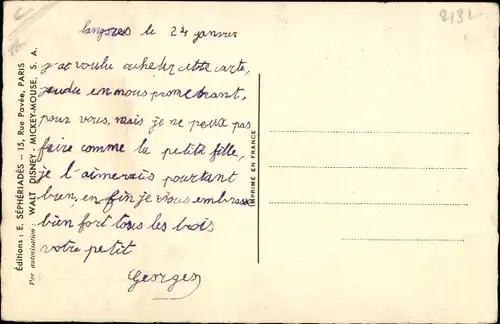 2132
Langres le 24 janvier
j'ai voulu acheter cette carte,
jeudi en nous promenant,
pour vous, mais je ne peux pas
faire comme la petite fille,
je l'aimerais pourtant
bien, en fin je vous embrasse
bien fort tous les bois
votre petit
Georges
Éditions : E. SÉPHÉRIADÈS -- 15, Rue Pavée, PARIS
Par autorisation : WALT DISNEY - MICKEY-MOUSE, S. A.
IMPRIMÉ EN FRANCE